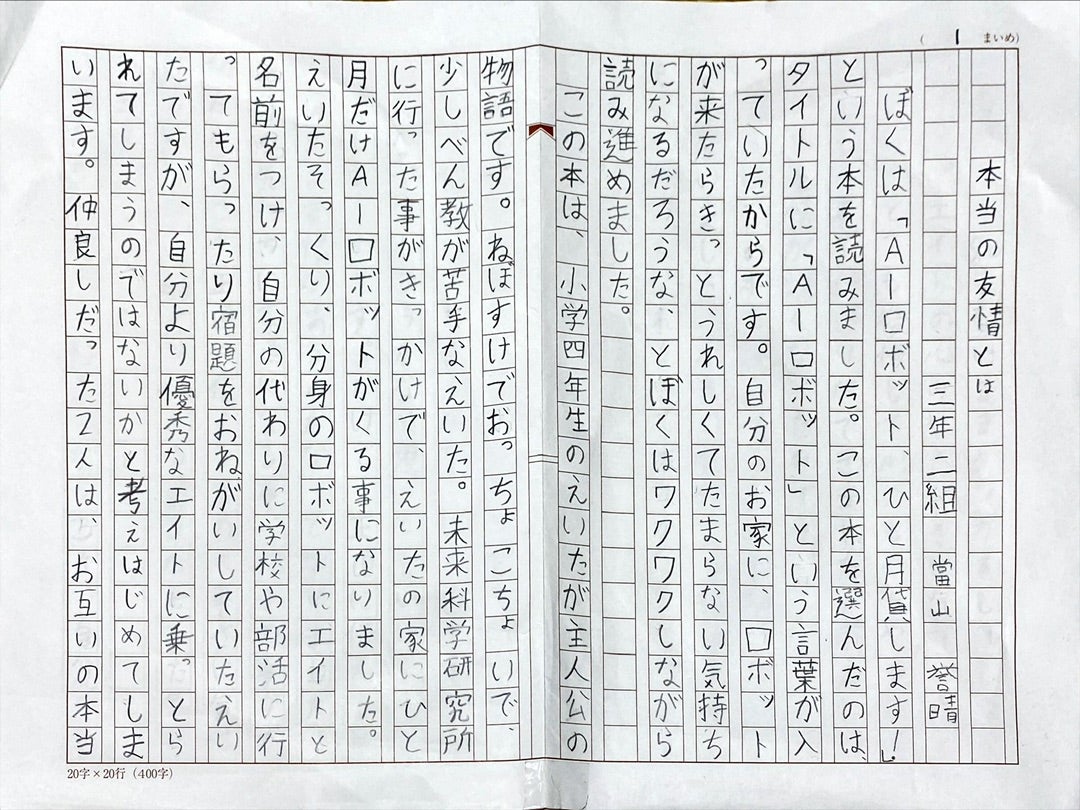 ( 1 まいめ)
本当の友情とは
三年二組 當山 誉晴
ぼくは「AIロボット、ひと月貸します!」
という本を読みました。この本を選んだのは、
タイトルに「AIロボット」という言葉が入
っていたからです。自分のお家に、ロボット
が来たらきっとうれしくてたまらない気持ち
になるだろうな、とぼくはワクワクしながら
読み進めました。
この本は、小学四年生のえいたが主人公の
物語です。ねぼすけでおっちょこちょいで、
少しべん教が苦手なえいた。未来科学研究所
に行った事がきっかけで、えいたの家にひと
月だけAIロボットがくる事になりました。
えいたそっくり、分身のロボットにエイトと
名前をつけ、自分の代わりに学校や部活に行
ってもらったり宿題をおねがいしていたえい
たですが、自分より優秀なエイトに乗っとら
れてしまうのではないかと考えはじめてしま
います。仲良しだった2人は、お互いの本当
20字×20行(400字)